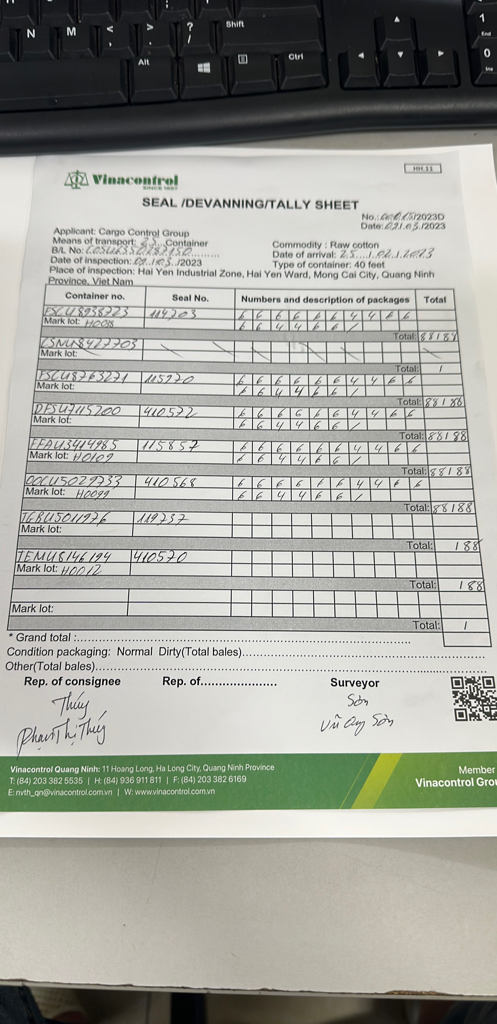 N M < > ? / Shift
Alt Ctrl
1 End
0 Ins
HH.11
Vinacontrol
SINCE 1957
SEAL /DEVANNING/TALLY SHEET
No.: /2023D
Date: 02/03/2023
Applicant: Cargo Control Group
Means of transport: Container
Commodity : Raw cotton
B/L No: COSU6350287150
Date of arrival: 25/02/2023
Date of inspection: 02/03/2023
Type of container: 40 feet
Place of inspection: Hai Yen Industrial Zone, Hai Yen Ward, Mong Cai City, Quang Ninh
Province, Viet Nam
Container no. Seal No. Numbers and description of packages Total
114703 6 6 6 6 6 6 4 4 6 6
Mark lot: H0018 6 6 4 4 6 6 /
Total: 88 188
CSNU8427703
Mark lot:
Total: /
FSCU8763271 115970 6 6 6 6 6 6 4 4 6 6
Mark lot: 6 6 4 4 6 6 /
Total: 88 188
DFSU7115200 410572 6 6 6 6 6 6 4 4 6 6
Mark lot: 6 6 4 4 6 6 /
Total: 88 188
FFAU3414985 115857 6 6 6 6 6 6 4 4 6 6
Mark lot: H0109 6 6 4 4 6 6 /
Total: 88 188
OOLU5029733 410568 6 6 6 6 6 6 4 4 6 6
Mark lot: H0099 6 6 4 4 6 6 /
Total: 88 188
TGBU5011976 119737
Mark lot:
Total: 188
TEMU8146194 410570
Mark lot: H0012
Total: 188
Mark lot:
Total: /
* Grand total :
Condition packaging: Normal Dirty(Total bales)
Other(Total bales)
Rep. of consignee Rep. of Surveyor
Thúy Sơn
Phạm Thị Thúy Vũ Sơn
Vinacontrol Quang Ninh: 11 Hoang Long, Ha Long City, Quang Ninh Province
T: (84) 203 382 5535 | H: (84) 936 911 811 | F: (84) 203 382 6169
E: nvth_qn@vinacontrol.com.vn | W: www.vinacontrol.com.vn
Member
Vinacontrol Grou